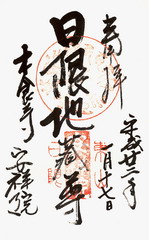 奉拝
平成廿二年
一月十七日
日限地蔵尊
安祥院